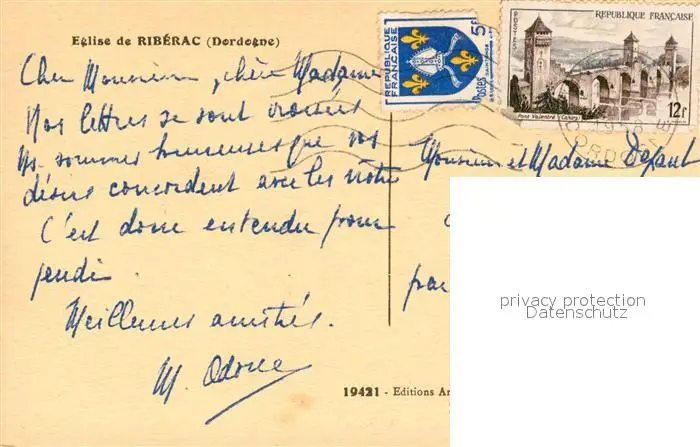 Eglise de RIBÉRAC (Dordogne)
Cher Monsieur, chère Madame
Nos lettres se sont croisées
Ns. sommes heureuses que vos
désirs concordent avec les nôtres
C'est donc entendu pour
jeudi.
Meilleures amitiés.
M.
REPUBLIQUE FRANÇAISE
5f
Postes
REPUBLIQUE FRANÇAISE
POSTES
12f
Pont Valentré (Cahors)
Monsieur et Madame
par
19421 - Editions
privacy protection
Datenschutz